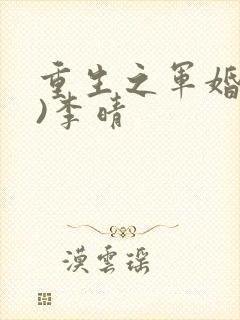 重生之军婚
)李晴
漠雲瑶